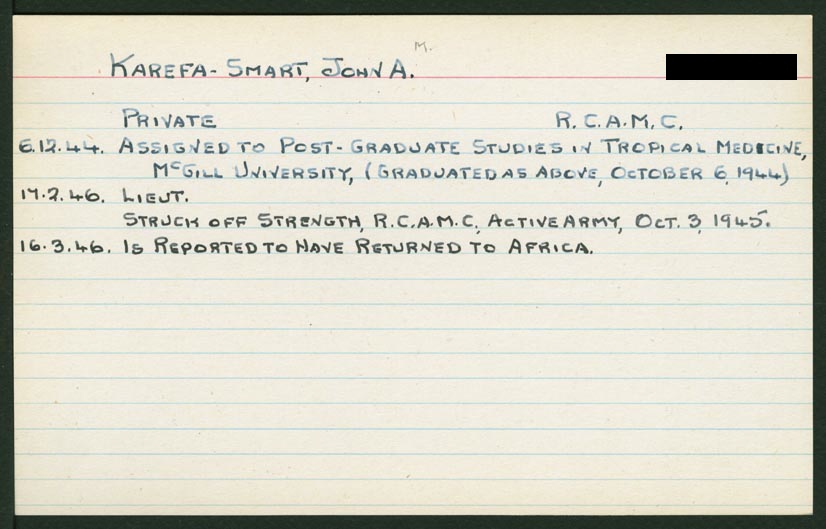 M.
KAREFA-SMART, JOHN A.
PRIVATE R.C.A.M.C.
6.12.44. ASSIGNED TO POST-GRADUATE STUDIES IN TROPICAL MEDICINE,
McGILL UNIVERSITY, (GRADUATED AS ABOVE, OCTOBER 6, 1944)
17.2.46. LIEUT.
STRUCK OFF STRENGTH, R.C.A.M.C. ACTIVE ARMY, OCT. 3, 1945.
16.3.46. IS REPORTED TO HAVE RETURNED TO AFRICA.